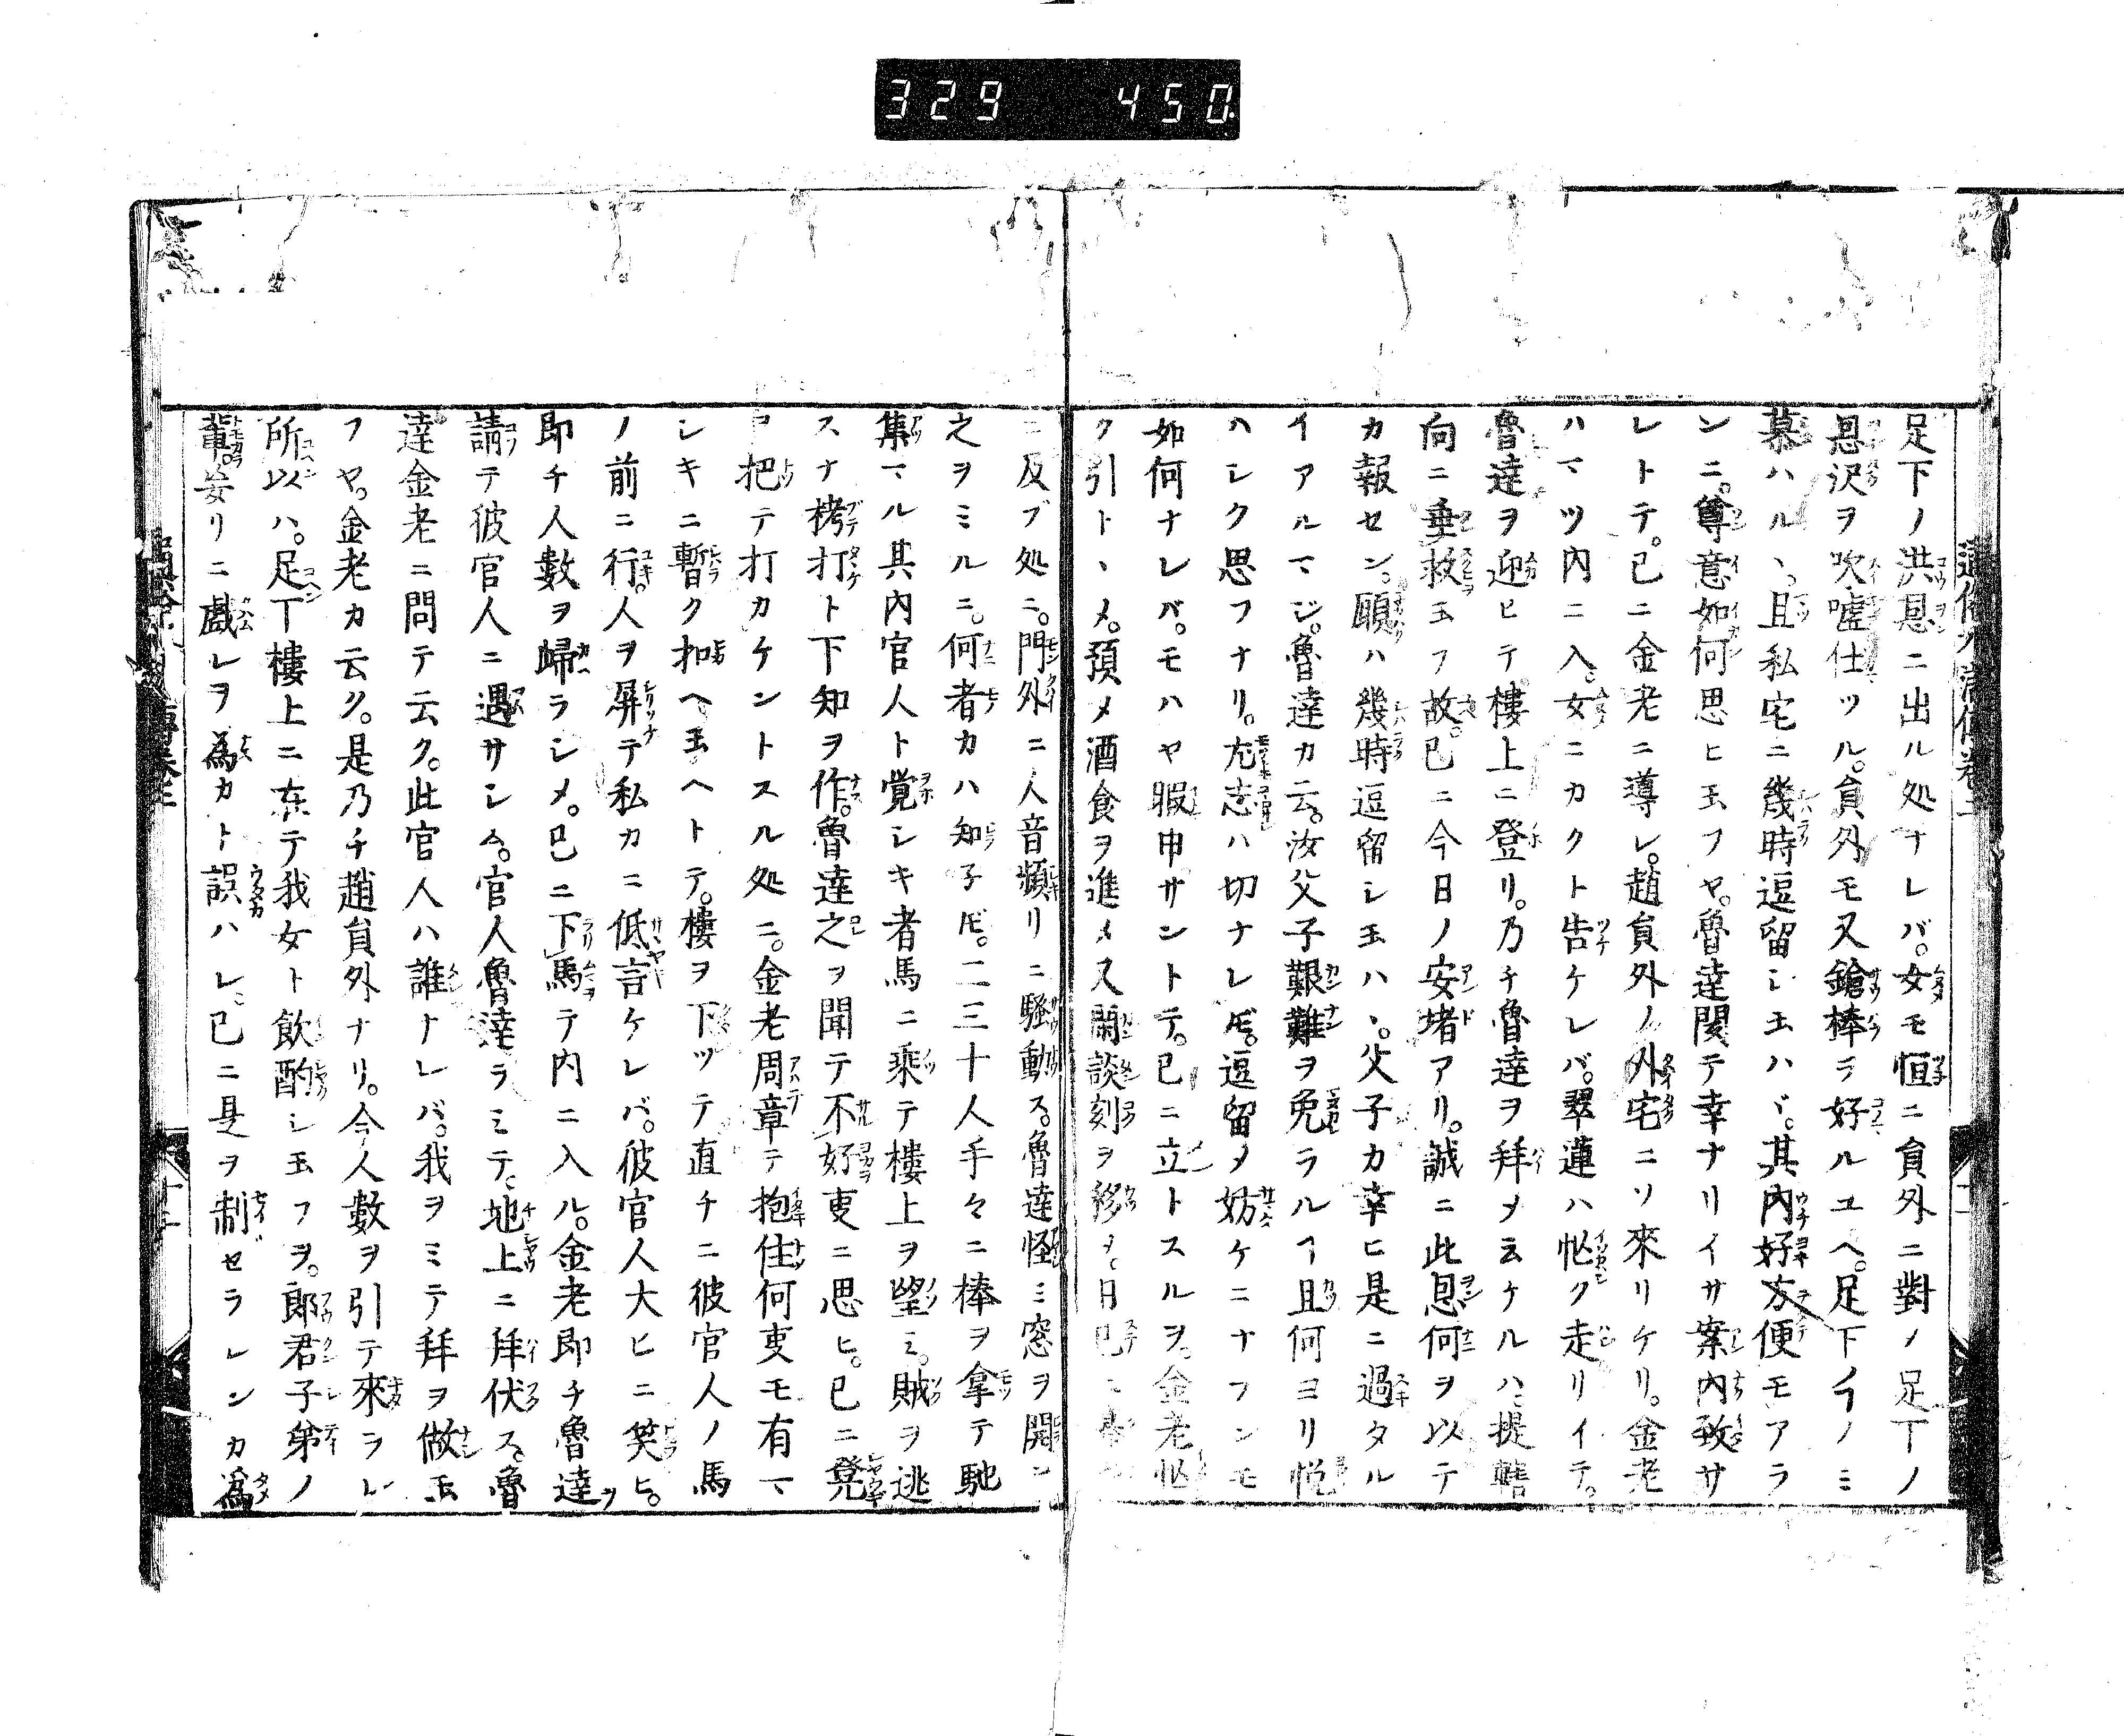 329 450
足下ノ洪恩ニ出ル処ナレバ。女モ恒ニ貟外ニ對ノ足下ノ
恩沢ヲ吹嘘仕ツル。貟外モ又鎗棒ヲ好ルユヘ。足下イノミ
慕ハルヽ。且私宅ニ幾時逗留シ玉ハヾ。其内好方便モアラ
ンニ。尊意如何思ヒ玉フヤ。魯達関テ幸ナリイサ案内致サ
レトテ。已ニ金老ニ導レ。趙貟外ノ外宅ニソ來リケリ。金老
ハマツ内ニ入。女ニカクト告ケレバ。翠蓮ハ忙ク走リイテ。
魯達ヲ迎ヒテ樓上ニ登リ。乃チ魯達ヲ拜メ云ケルハ。提轄
向ニ垂救玉フ故。已ニ今日ノ安堵アリ。誠ニ此恩何ヲ以テ
カ報セン。願ハ幾時逗留シ玉ハヽ。父子カ幸ヒ是ニ過タル
イアルマジ。魯達カ云。汝父子艱難ヲ免ラルヽ且何ヨリ悦
ハシク思フナリ。尤志ハ切ナレ𪜈。逗留メ妨ケニナランモ
如何ナレバ。モハヤ暇申サントテ。已ニ立トスルヲ。金老忙
ク引トヽメ。預メ酒食ヲ進メ又閑談刻ヲ移ヲ。日已ニ
ニ及ブ処ニ。門外ニ人音頻リニ騒動ス。魯達怪ミ窓ヲ開ン
之ヲミルニ。何者カハ知子𪜈。二三十人手々ニ棒ヲ拿テ馳
集マル其内官人ト覚シキ者馬ニ乘テ樓上ヲ望ミ。賊ヲ逃
スナ栲打ト下知ヲ作。魯達之ヲ聞テ不好叓ニ思ヒ。已ニ凳
ヲ把テ打カケントスル処ニ。金老周章テ抱住何叓モ有マ
シキニ暫ク扣ヘ玉ヘトテ。樓ヲ下ツテ直チニ彼官人ノ馬
ノ前ニ行。人ヲ屏テ私カニ低言ケレバ。彼官人大ヒニ笑ヒ。
即チ人數ヲ歸ラシメ。已ニ下馬テ内ニ入ル。金老即チ魯達ヲ
請テ彼官人ニ遇サシム。官人魯達ヲミテ。地上ニ拜伏ス。魯
達金老ニ問テ云ク。此官人ハ誰ナレバ。我ヲミテ拜ヲ做玉
フヤ。金老カ云ク。是乃チ趙貟外ナリ。今人數ヲ引テ來ラレ
所以ハ。足下樓上ニ在テ我女ト飲酌シ玉フヲ。郎君子弟ノ
輩妄リニ戯レヲ為カト誤ハレ。已ニ是ヲ制セラレンカ爲